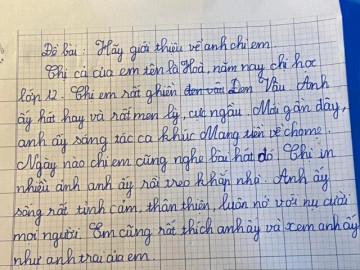 Đề bài: Hãy giới thiệu về anh chị em.
Chị cả của em tên là Hoà, năm nay chị học
lớp 12. Chị em rất ghiền đen vâu Đen Vâu. Anh
ấy hát hay và rất men lỳ, cực ngầu. Mới gần đây,
anh ấy sáng tác ca khúc Mang tiền về chome.
Ngày nào chị em cũng nghe bài hát đó. Chị in
nhiều ảnh anh ấy rồi treo khắp nhà. Anh ấy
sống rất tình cảm, thân thiên, luôn nở với nụ cười
mọi người. Em cũng rất thích anh ấy và xem anh ấy
như anh trai của em.